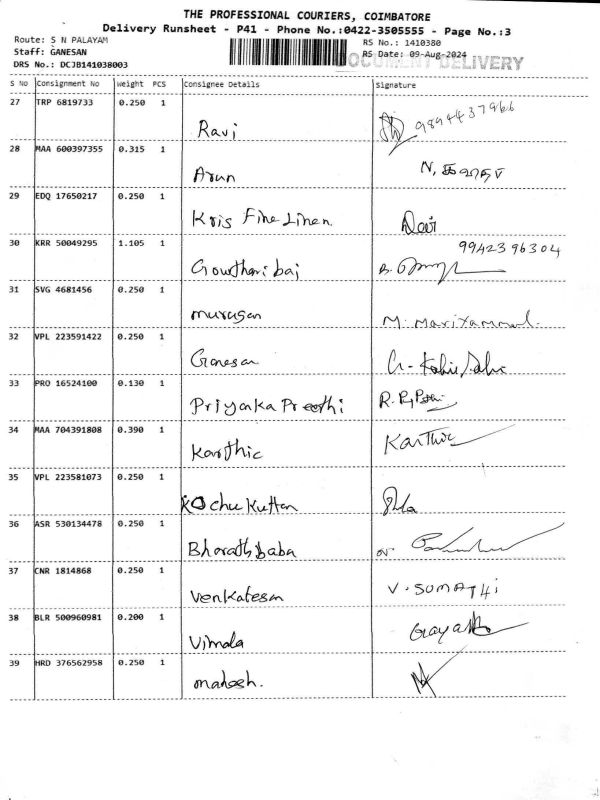 THE PROFESSIONAL COURIERS, COIMBATORE
Delivery Runsheet - P41 - Phone No.:0422-3505555 - Page No.:3
Route: S N PALAYAM RS No.: 1410380
Staff: GANESAN RS Date: 09-Aug-2024
DOCUMENT DELIVERY
DRS No.: DCJB141038003
S No Consignment No Weight PCS Consignee Details Signature
27 TRP 6819733 0.250 1 Ravi 9894437966
28 MAA 600397355 0.315 1 Arun N,
29 EDQ 17650217 0.250 1 Kris Fine Linen. Devi
30 KRR 50049295 1.105 1 Gowthari bai B. 9942396304
31 SVG 4681456 0.250 1 murugan M. Mariyammal.
32 VPL 223591422 0.250 1 Ganesan G-
33 PRO 16524100 0.130 1 Priyanka Preethi R.
34 MAA 704391808 0.390 1 Karthic Karthic
35 VPL 223581073 0.250 1 Kochu Kuttan
36 ASR 530134478 0.250 1 Bharath baba
37 CNR 1814868 0.250 1 Venkatesan V. SUMATHi
38 BLR 500960981 0.200 1 Vimala
39 HRD 376562958 0.250 1 mahesh.